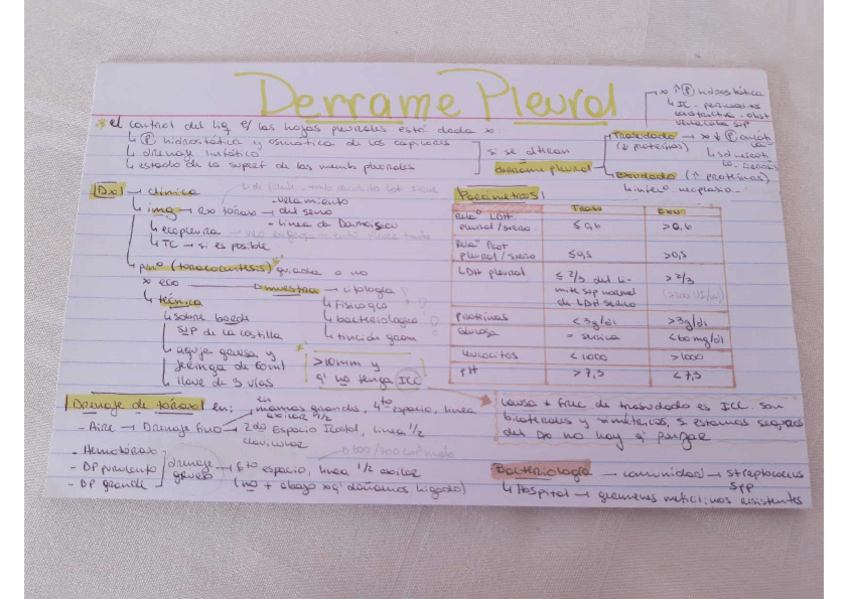 Derrame Pleural
* el control del liq e/ las hojas pleurales está dada x:
↳ (P) hidrostática y osmótica de los capilares
↳ drenaje linfático
↳ estado de la superf de las memb pleurales
si se alteran
derrame pleural
Trasudado → x ↓ (P)
(↓ proteínas)
x ↑ (P) hidrostática
↳ IC - pericarditis
constrictiva - obst
vena cava sup
Exudado (↑ proteínas)
↳ infecc neoplasia -
Dx → clínica
↳ img → Rx tórax → - velamiento
del seno
- línea de Damoiseau
↳ ecopleura →
↳ TC → si es posible
↳ punº (toracocentesis) guiada o no
x eco → muestra → citología
↳ fisicoqco
↳ bacteriológico
↳ tinción gram
↳ técnica
↳ sobre borde
sup de la costilla
↳ aguja gruesa y
jeringa de 60ml
↳ llave de 3 vías
* >10mm y
q' no tenga ICC
Parámetros
Trasu Exu
Relaº LDH
pleural / sérico ≤ 0,6 >0,6
Relaº Prot
pleural / sérico ≤ 0,5 >0,5
LDH pleural ≤ 2/3 del lí- > 2/3
mite sup normal
de LDH sérico
Proteínas < 3g/dl >3g/dl
Glucosa = sérica <60 mg/dl
Leucocitos < 1000 >1000
pH > 7,3 < 7,3
Drenaje de tórax en:
- Aire → Drenaje fino → en mamas grandes, 4to espacio, línea
axilar 1/2
2do Espacio Icostal, línea 1/2
clavicular
- Hemotórax
- DP purulento
- DP grande
drenaje
grueso
→ 6to espacio, línea 1/2 axilar
(no + abajo xq' dañamos hígado)
causa + frec de trasudado es ICC. son
bilaterales y simétricos, si estamos seguros
del Dx no hay q' punzar
Bacteriología → comunidad → Streptococcus
spp
↳ Hospital → gérmenes meticilinos resistentes